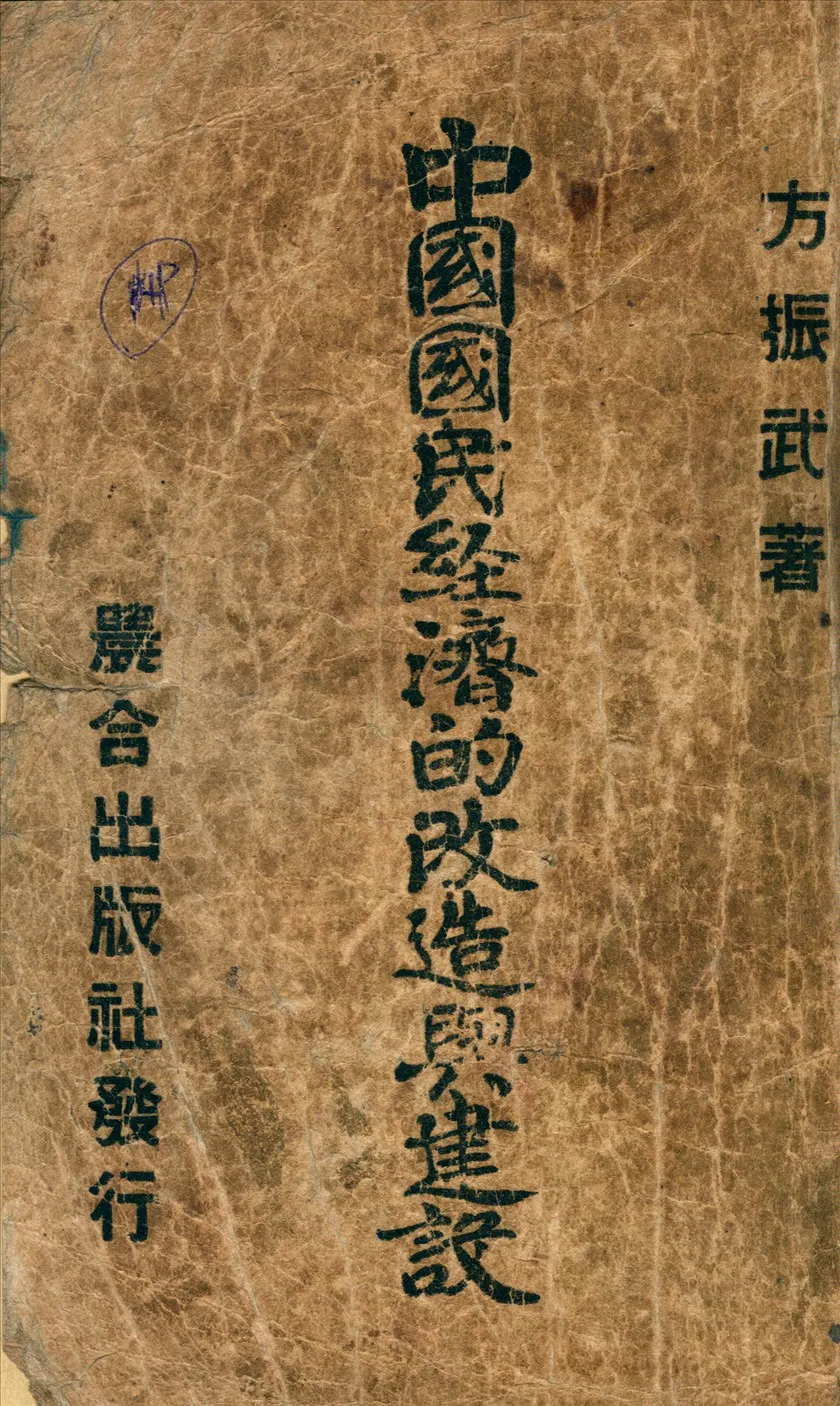 方振武著
中國國民経濟的改造與建設
農合出版社發行